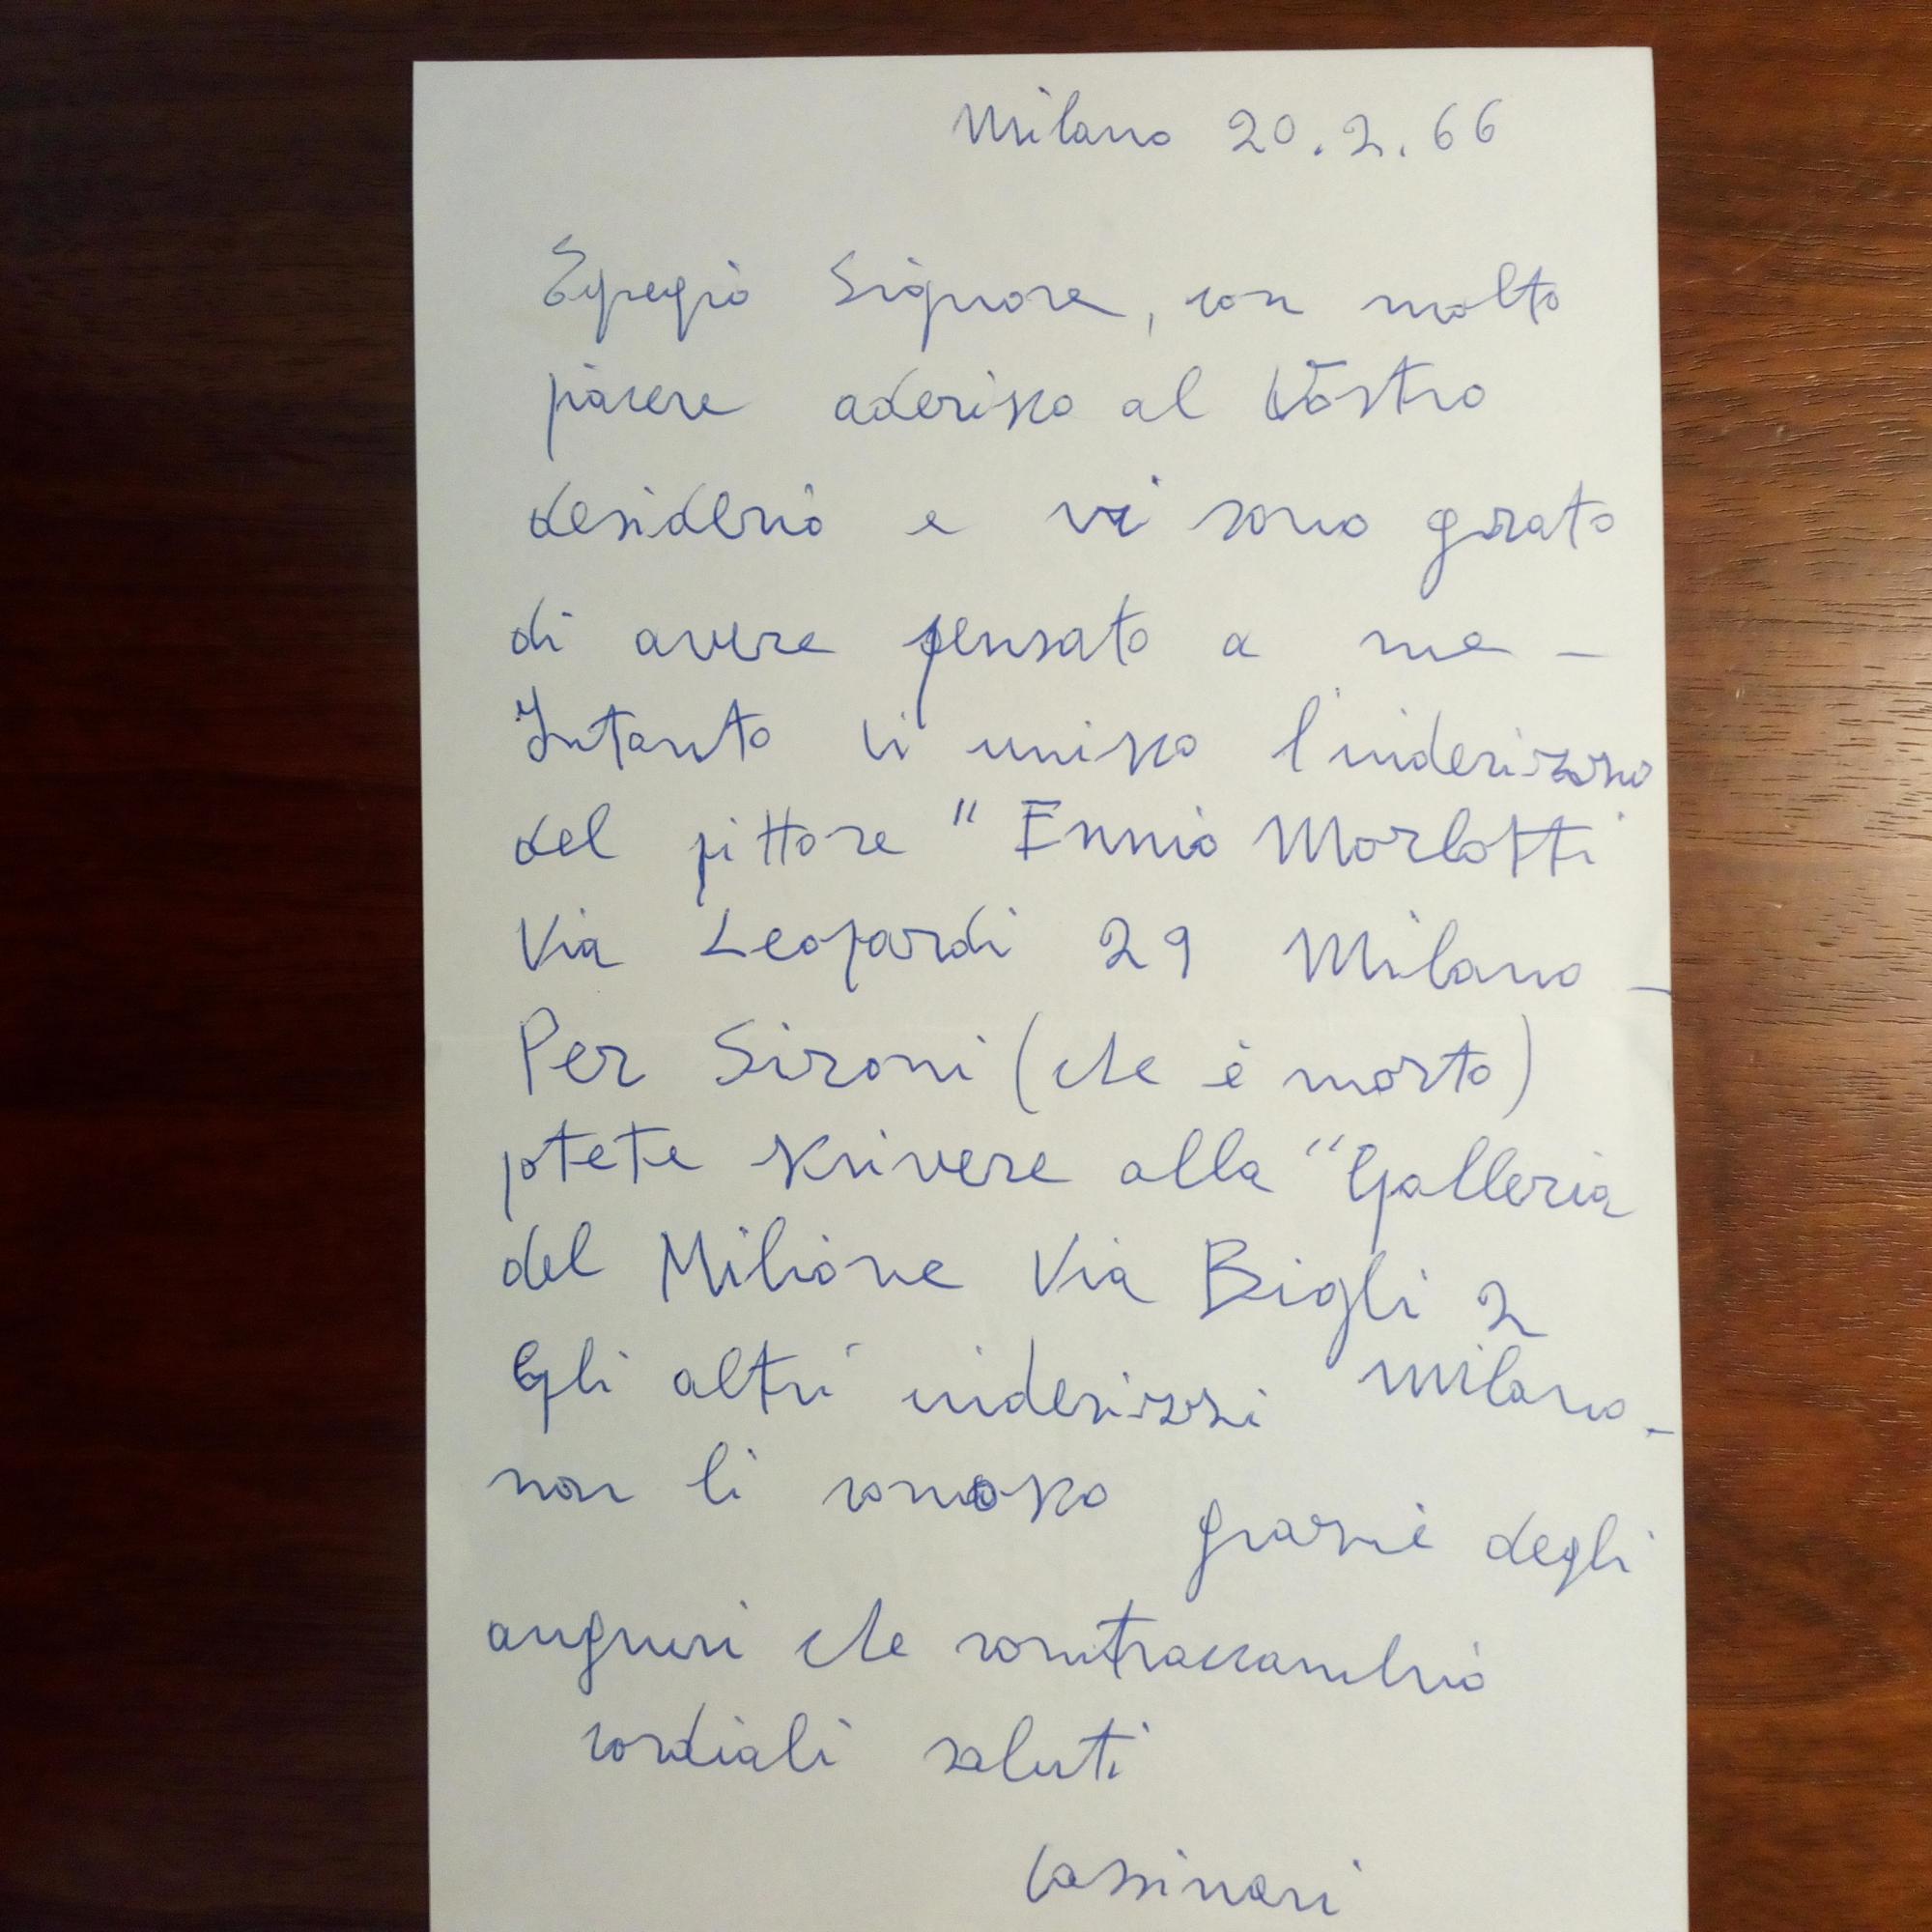 Milano 20.2.66
Egregio Signore, con molto
piacere aderisco al Vostro
desiderio e vi sono grato
di avere pensato a me -
Intanto vi unisco l'inderizzo
del pittore " Ennio Morlotti
Via Leopardi 29 Milano -
Per Sironi (che è morto)
potete scrivere alla "Galleria
del Milione Via Bigli 2
Milano -
Gli altri inderizzi
non li conosco grazie degli
auguri che contraccambio
cordiali saluti
Cassinari